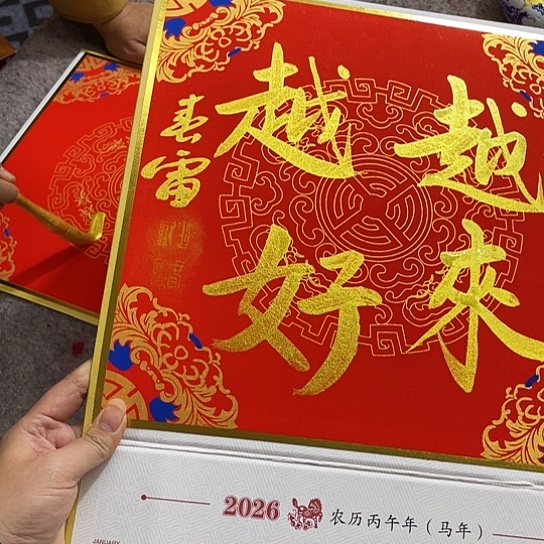 越來
越好
春雷
2026 农历丙午年（马年）
JANUARY